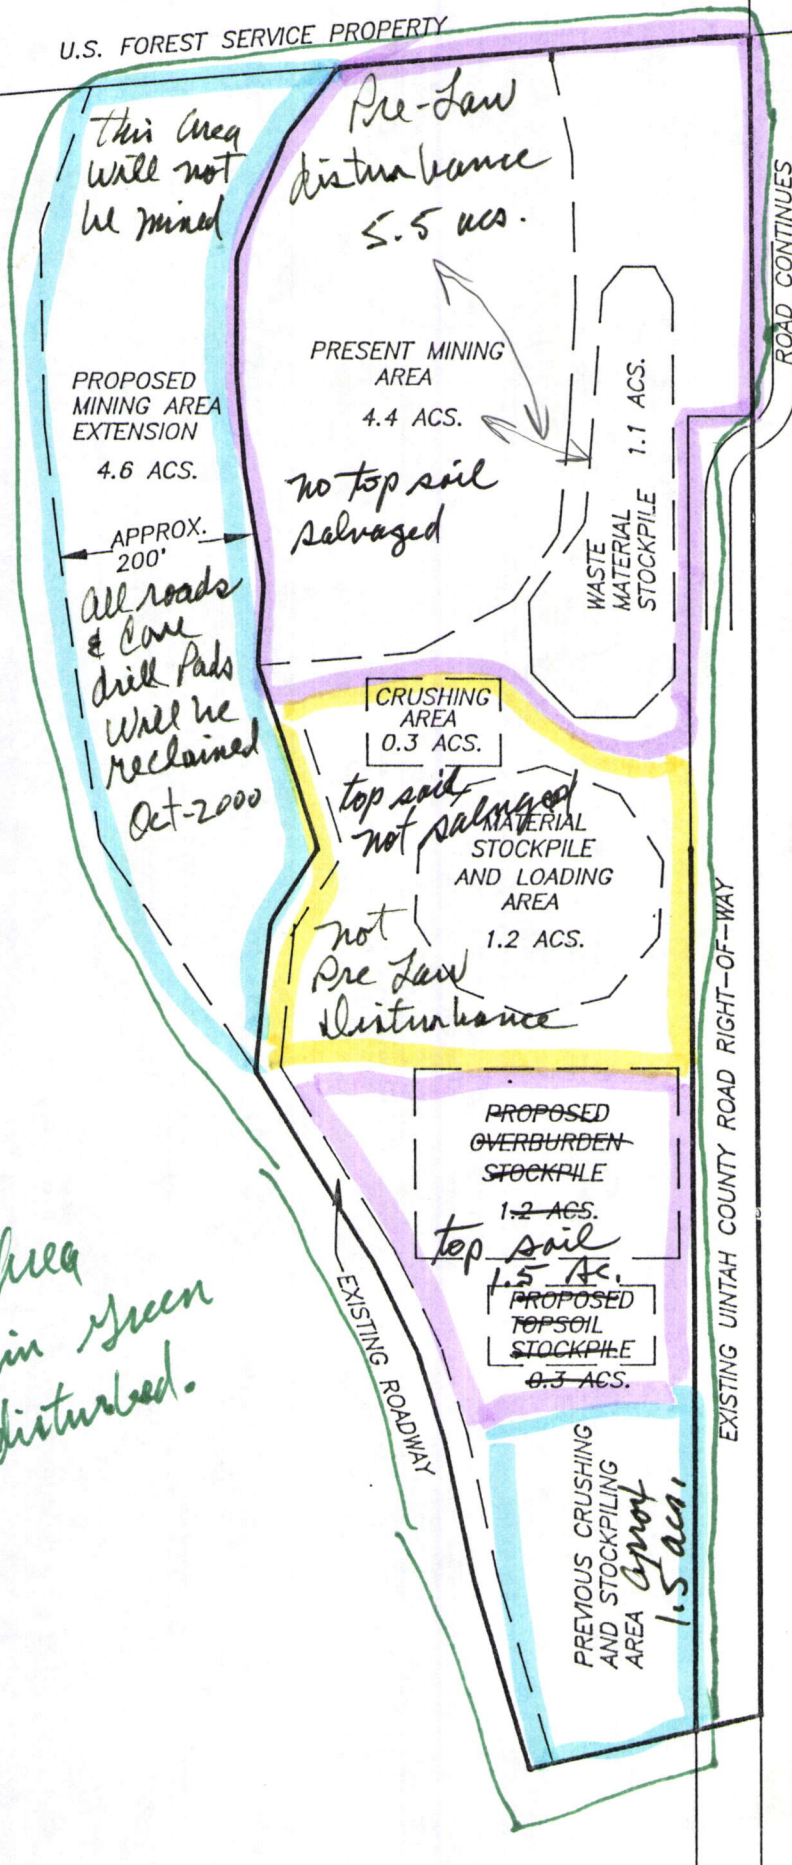 U.S. FOREST SERVICE PROPERTY
this area
will not
be mined
Pre-Law
disturbance
5.5 acs.
ROAD CONTINUES
PROPOSED
MINING AREA
EXTENSION
4.6 ACS.
PRESENT MINING
AREA
4.4 ACS.
no top soil
salvaged
WASTE
MATERIAL
STOCKPILE 1.1 ACS.
APPROX.
200'
all roads
& Core
drill Pads
will be
reclaimed
Oct-2000
CRUSHING
AREA
0.3 ACS.
top soil
not salvaged
MATERIAL
STOCKPILE
AND LOADING
AREA
1.2 ACS.
not
Pre Law
Disturbance
EXISTING UINTAH COUNTY ROAD RIGHT-OF-WAY
PROPOSED
OVERBURDEN
STOCKPILE
1.2 ACS.
top soil
1.5 Ac.
PROPOSED
TOPSOIL
STOCKPILE
0.3 ACS.
EXISTING ROADWAY
area
in green
disturbed.
PREVIOUS CRUSHING
AND STOCKPILING
AREA aprox
1.5 acs.